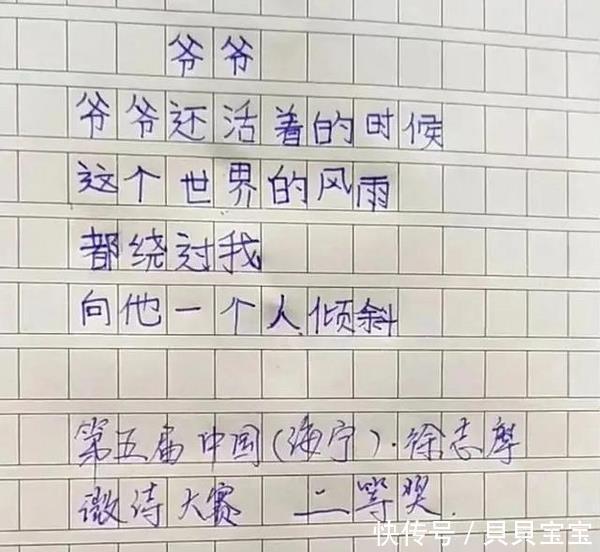 爷爷
爷爷还活着的时候
这个世界的风雨
都绕过我
向他一个人倾斜
第五届中国(海宁)·徐志摩
微诗大赛 二等奖.
快传号/貝貝宝宝